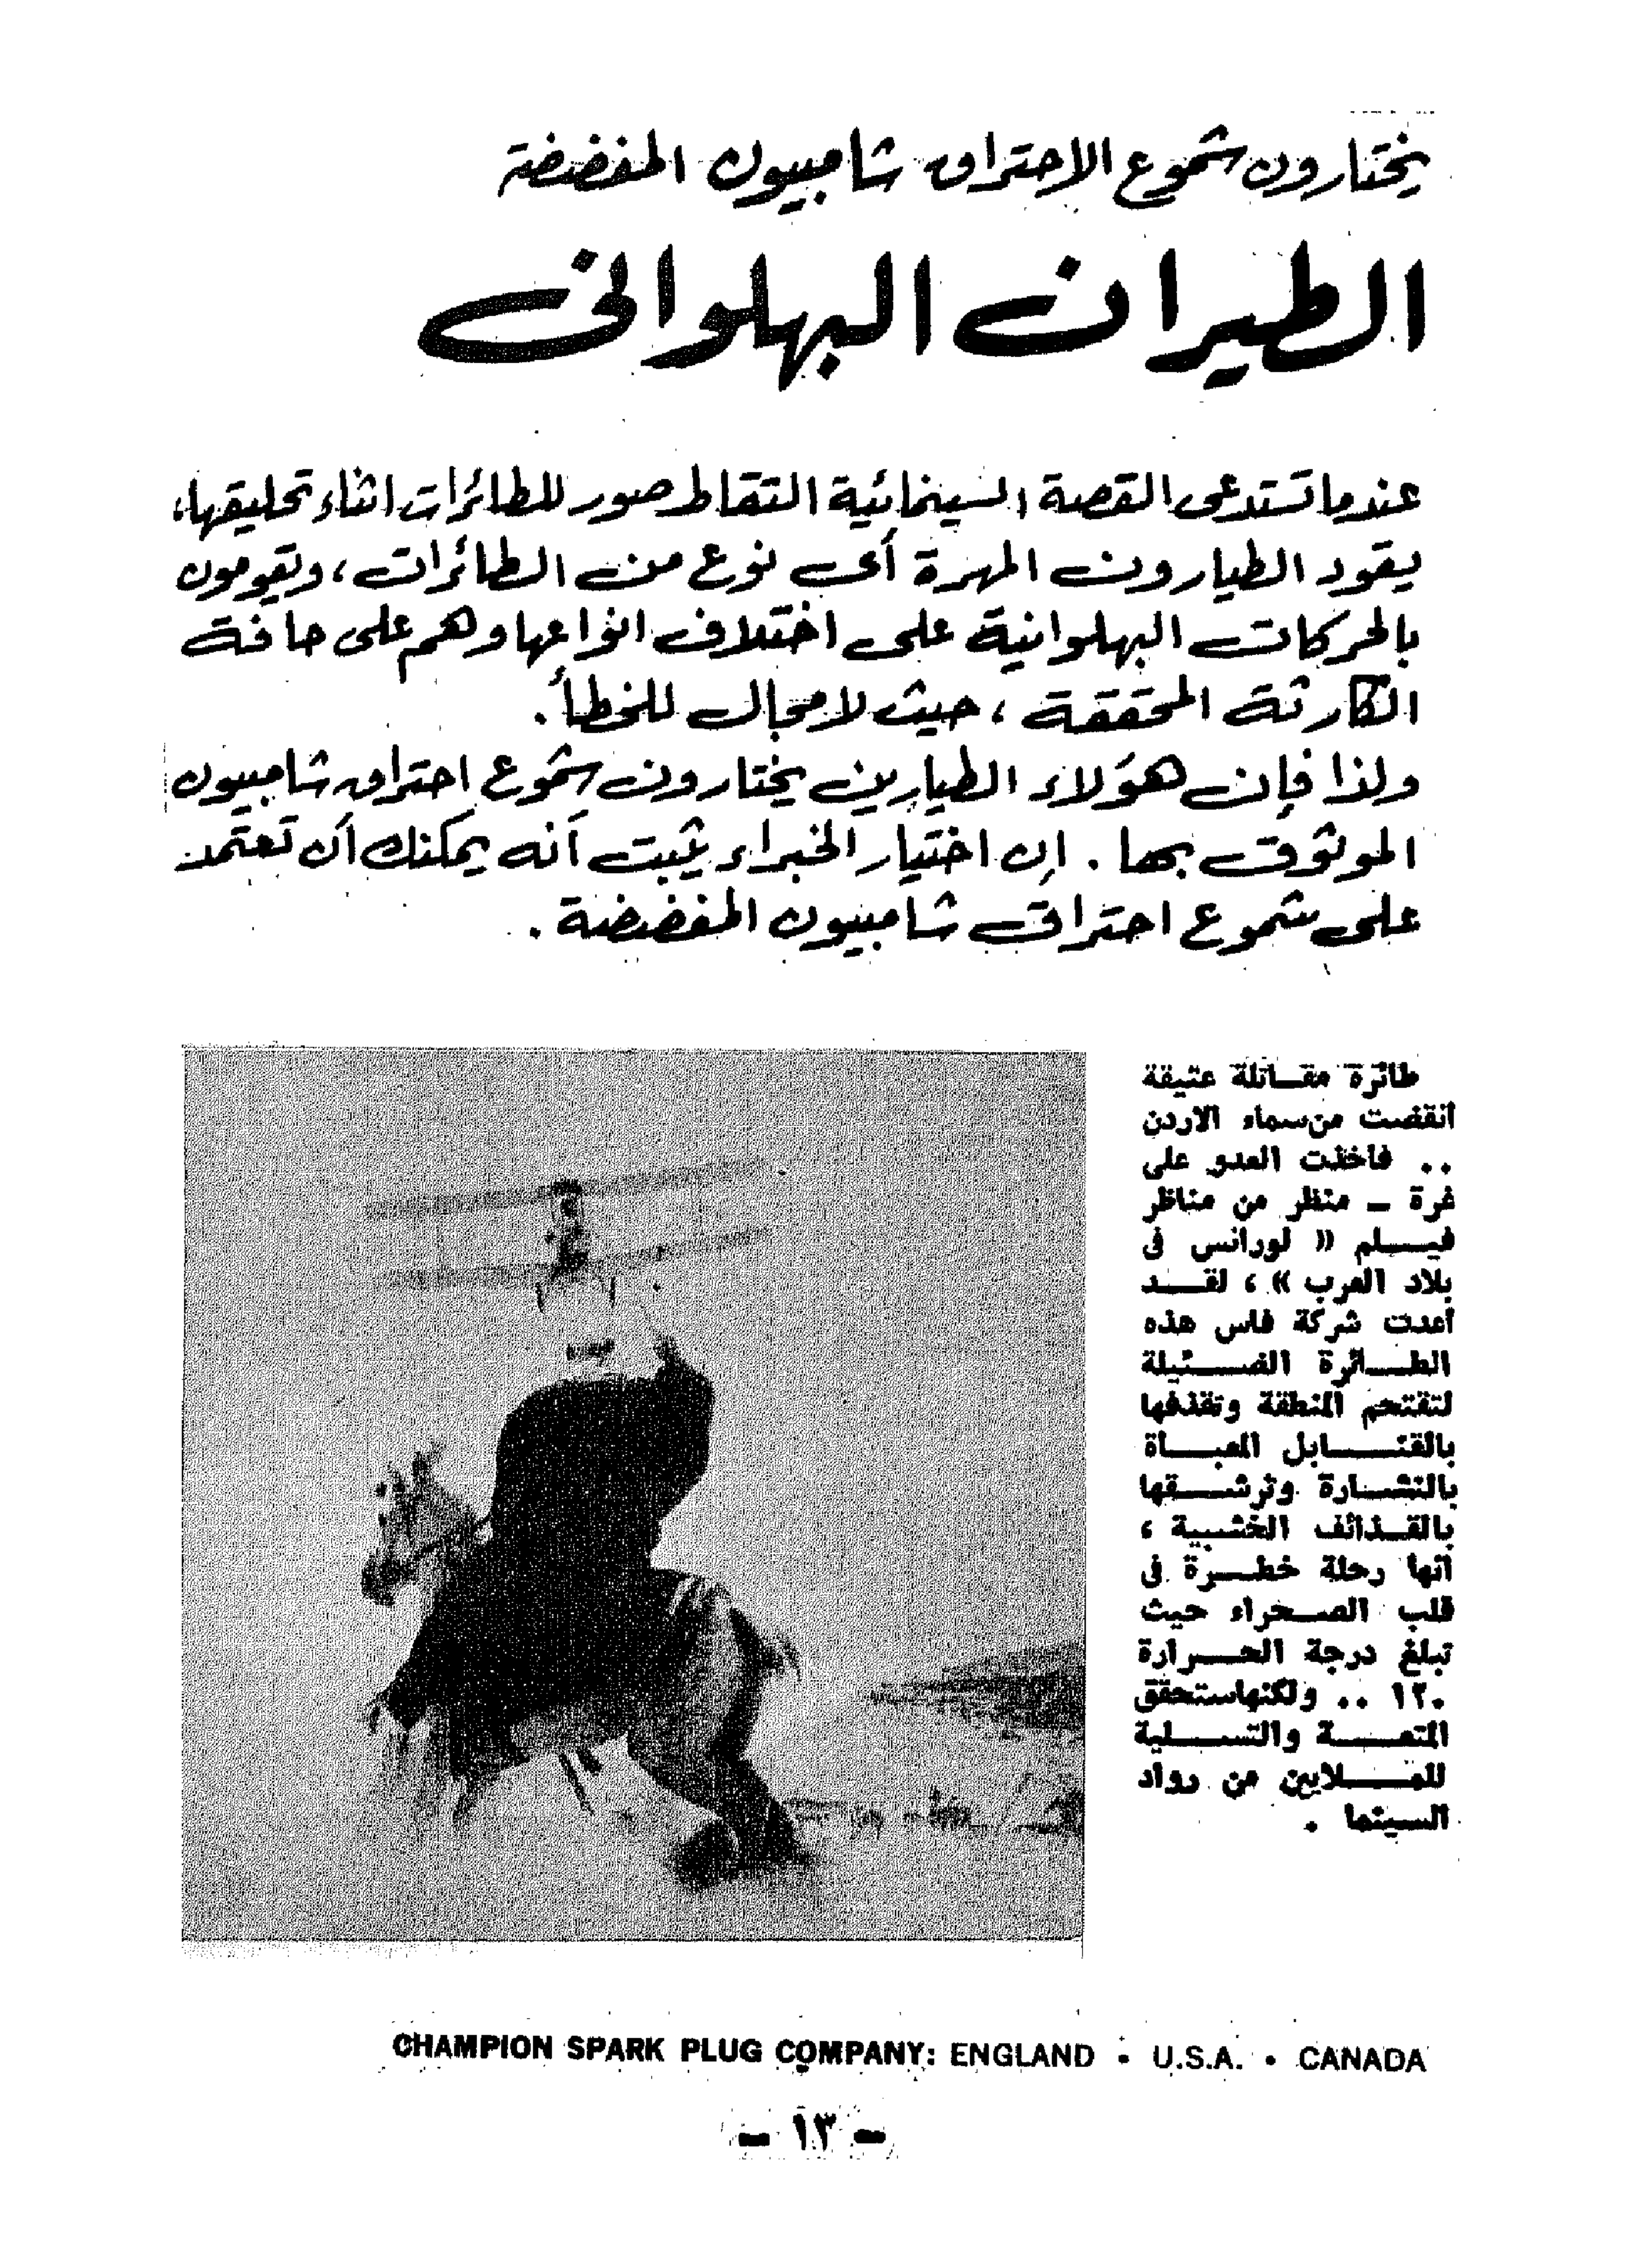 يختارون شموع الاحتراق شامبيون المفضضة
الطيران البهلوانى
عندما تستدعى القصة السينمائية التقاط صور للطائرات اثناء تحليقها،
يقود الطيارون المهرة أى نوع من الطائرات، ويقومون
بالحركات البهلوانية على اختلاف انواعها وهم على حافة
الكارثة المحققة، حيث لا مجال للخطأ.
ولذا فإن هؤلاء الطيارين يختارون شموع احتراق شامبيون
الموثوق بها. إن اختيار الخبراء يثبت أنه يمكنك أن تعتمد
على شموع احتراق شامبيون المفضضة.
طائرة مقاتلة عتيقة
انقضت من سماء الاردن
.. فاخذت العدو على
غرة ـ منظر من مناظر
فيلم « لورانس فى
بلاد العرب » ، لقد
أعدت شركة فاس هذه
الطائرة الضئيلة
لتقتحم المنطقة وتقذفها
بالقنابل المعبأة
بالنشارة وترشقها
بالقذائف الخشبية ،
انها رحلة خطرة فى
قلب الصحراء حيث
تبلغ درجة الحرارة
١٢٠ .. ولكنها ستحقق
المتعة والتسلية
للملايين من رواد
السينما .
CHAMPION SPARK PLUG COMPANY: ENGLAND • U.S.A. • CANADA
- ١٣ -